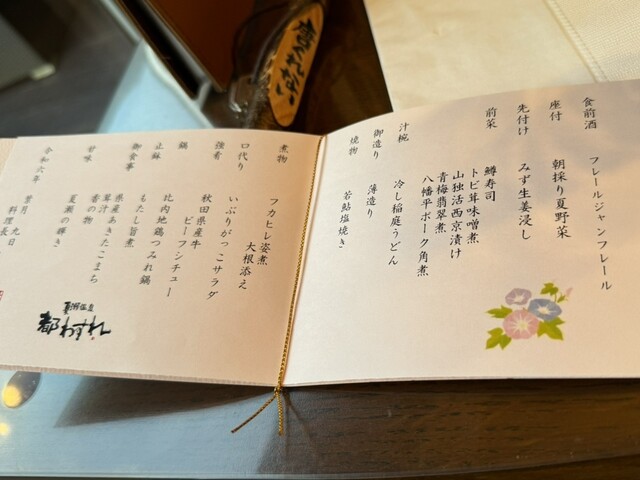 食前酒　フレールジャンフレール
座付　朝採り夏野菜
先付け　みず生姜浸し
前菜　鱒寿司
トビ茸味噌煮
山独活西京漬け
青梅翡翠煮
八幡平ポーク角煮
汁椀　冷し稲庭うどん
御造り　薄造り
焼物　若鮎塩焼き
煮物　フカヒレ姿煮
大根添え
口代り　いぶりがっこサラダ
強肴　秋田県産牛
ビーフシチュー
鍋　比内地鶏つみれ鍋
止鉢　もたし旨煮
御食事　県産あきたこまち
茸汁
香の物
甘味　夏瀬の輝き
令和六年　葉月　九日
料理長
都わすれ